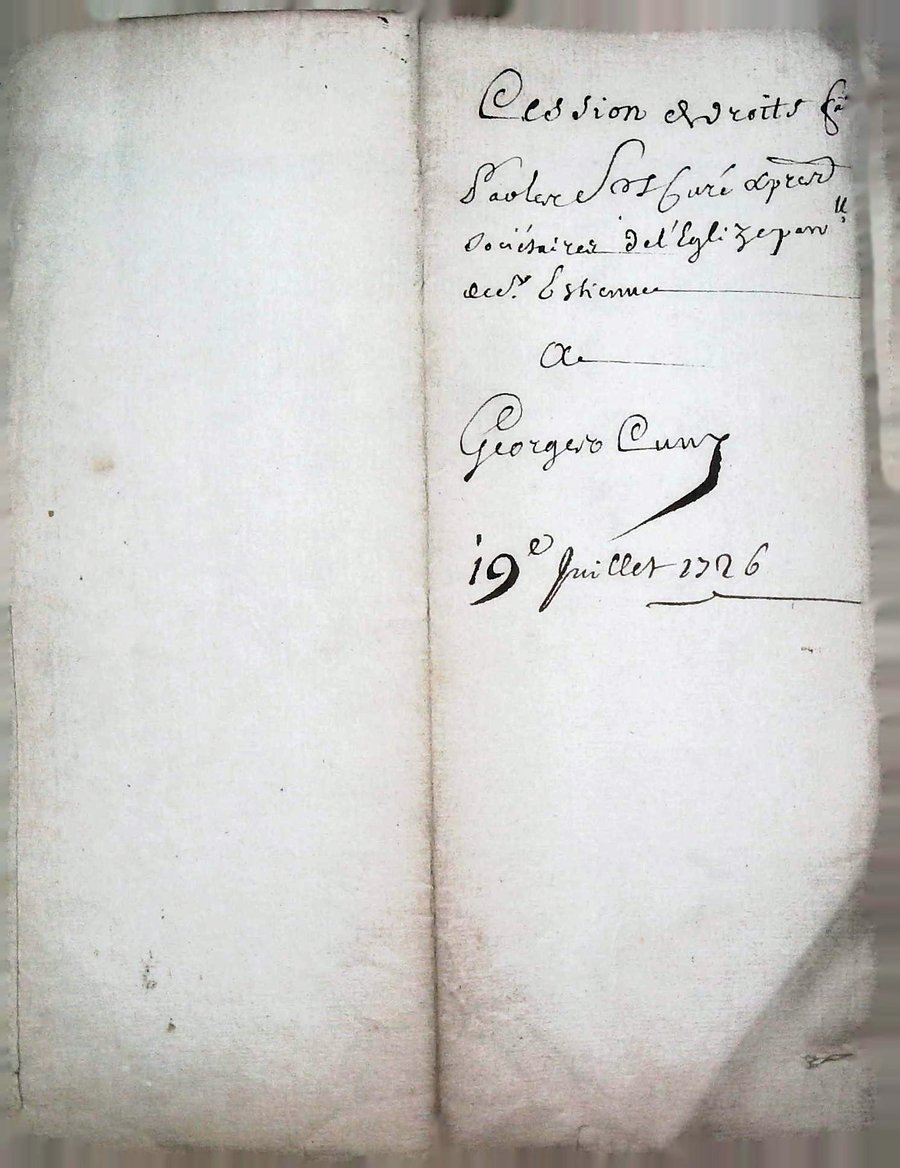 Cession & droits fa
Par les Srs Curé & prers
Sociétaires de l'Eglize parlle
de St Estienne
A
Georges Cuny
19e Juillet 1726